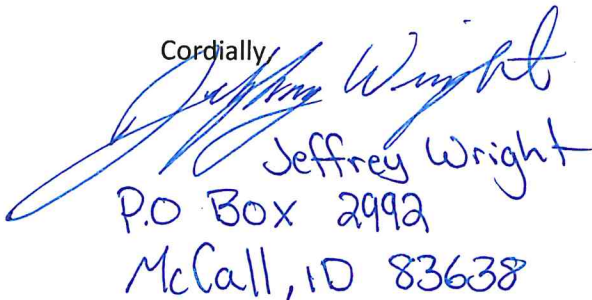 Cordially,
Jeffrey Wright
Jeffrey Wright
P.O Box 2992
McCall, ID 83638